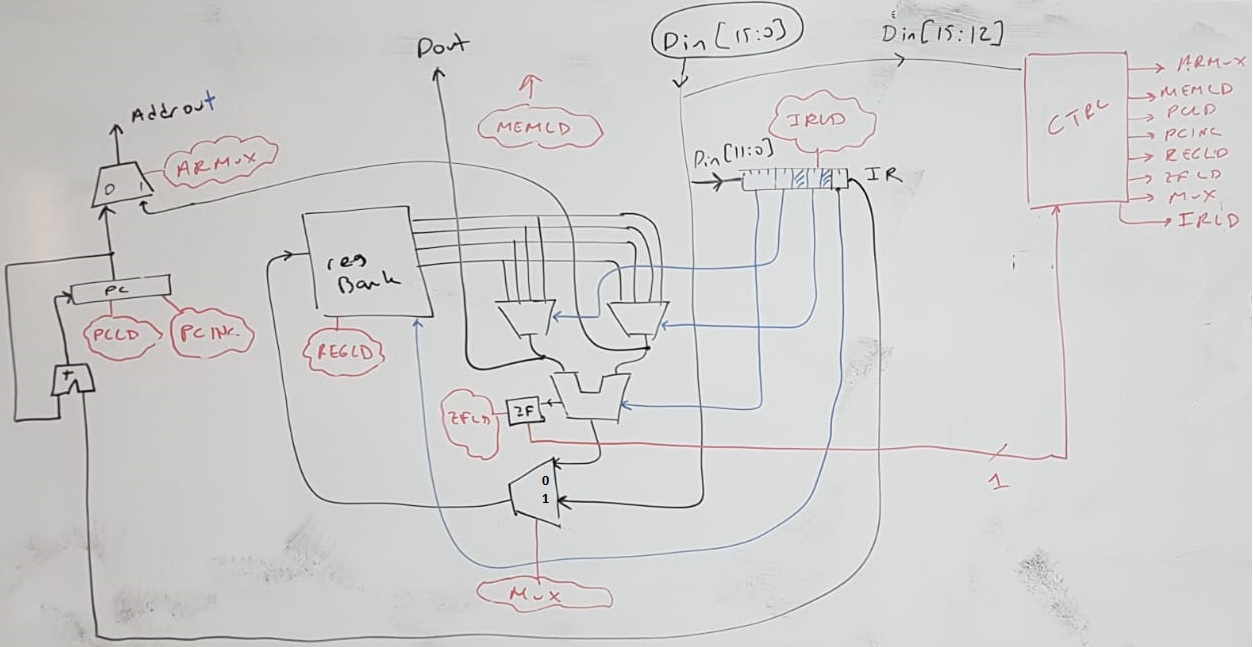 Dout
Din [15:0]
Din[15:12]
ARMUX
MEMLD
PCLD
PCINC
REGLD
ZFLD
MUX
IRLD
CTRL
Addrout
MEMLD
IRLD
Din[11:0]
IR
ARMUX
0 1
reg
Bank
PC
PCLD
PCINC
REGLD
+
ZFLD
ZF
0
1
1
MUX